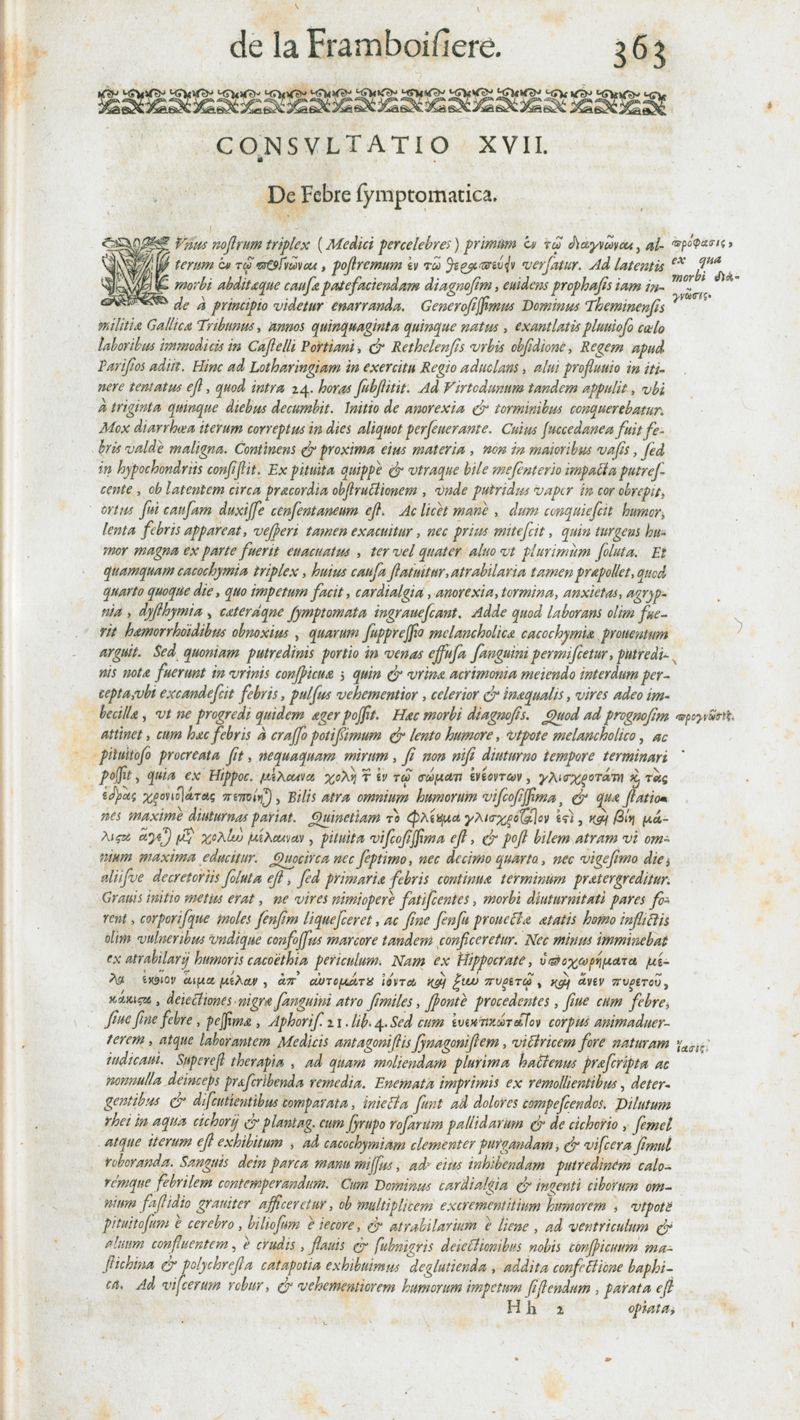 de la Framboiſiere. 363
CONSVLTATIO XVII.
De Febre ſymptomatica.
MVnus noſtrum triplex (Medici percelebres) primùm ἐν τῷ διαγνῶναι, al-
terum ἐν τῷ προγνῶναι, poſtremum ἐν τῷ θεραπεύειν verſatur. Ad latentis
morbi abditæque cauſæ patefaciendam diagnoſim, euidens prophaſis iam in-
de à principio videtur enarranda. Generoſiſſimus Dominus Theminenſis
militiæ Gallicæ Tribunus, annos quinquaginta quinque natus, exantlatis pluuioſo cælo
laboribus immodicis in Caſtelli Portiani, & Rethelenſis vrbis obſidione, Regem apud
Pariſios adiit. Hinc ad Lotharingiam in exercitu Regio aduolans, alui profluuio in iti-
nere tentatus eſt, quod intra 24. horas ſubſtitit. Ad Virtodunum tandem appulit, vbi
à triginta quinque diebus decumbit. Initio de anorexia & torminibus conquerebatur.
Mox diarrhœa iterum correptus in dies aliquot perſeuerante. Cuius ſuccedanea fuit fe-
bris valdè maligna. Continens & proxima eius materia, non in maioribus vaſis, ſed
in hypochondriis conſiſtit. Ex pituita quippè & vtraque bile meſenterio impacta putreſ-
cente, ob latentem circa præcordia obſtructionem, vnde putridus vapor in cor obrepit,
ortus ſui cauſam duxiſſe cenſentaneum eſt. Ac licèt manè, dum conquieſcit humor,
lenta febris appareat, veſperi tamen exacuitur, nec prius miteſcit, quin turgens hu-
mor magna ex parte fuerit euacuatus, ter vel quater aluo vt plurimùm ſoluta. Et
quamquam cacochymia triplex, huius cauſa ſtatuitur, atrabilaria tamen præpollet, quod
quarto quoque die, quo impetum facit, cardialgia, anorexia, tormina, anxietas, agryp-
nia, dyſthymia, cæteráque ſymptomata ingraueſcant. Adde quod laborans olim fue-
rit hæmorrhoïdibus obnoxius, quarum ſuppreſſio melancholicæ cacochymiæ prouentum
arguit. Sed quoniam putredinis portio in venas effuſa ſanguini permiſcetur, putredi-
nis notæ fuerunt in vrinis conſpicuæ; quin & vrinæ acrimonia meiendo interdum per-
cepta, vbi excandeſcit febris, pulſus vehementior, celerior & inæqualis, vires adeo im-
becillæ, vt ne progredi quidem æger poſſit. Hæc morbi diagnoſis. Quod ad prognoſim
attinet, cum hæc febris à craſſo potiſſimum & lento humore, vtpote melancholico, ac
pituitoſo procreata ſit, nequaquam mirum, ſi non niſi diuturno tempore terminari
poſſit, quia ex Hippoc. μέλαινα χολὴ τῶν ἐν τῷ σώματι ἐνεόντων, γλισχροτάτη καὶ τὰς
ἕδρας χρονιωτάτας πεποίηται, Bilis atra omnium humorum viſcoſiſſima, & quæ ſtatio-
nes maximè diuturnas pariat. Quinetiam τὸ φλέγμα γλισχρότατον ἐστὶ, καὶ βίῃ μά-
λιστα ἄγεται μετὰ χολὴν μέλαιναν, pituita viſcoſiſſima eſt, & poſt bilem atram vi om-
nium maxima educitur. Quocirca nec ſeptimo, nec decimo quarto, nec vigeſimo die,
aliiſve decretoriis ſoluta eſt, ſed primariæ febris continuæ terminum prætergreditur.
Grauis initio metus erat, ne vires nimioperè fatiſcentes, morbi diuturnitati pares fo-
rent, corporiſque moles ſenſim liqueſceret, ac ſine ſenſu prouectæ ætatis homo inflictis
olim vulneribus vndique confoſſus marcore tandem conficeretur. Nec minus imminebat
ex atrabilarij humoris cacoëthia periculum. Nam ex Hippocrate, ὑποχωρήματα μέ-
λανα ὁκοῖον αἷμα μέλαν, ἀπ' αὐτομάτου ἰόντα καὶ ξὺν πυρετῷ, καὶ ἄνευ πυρετοῦ,
κάκιστα, deiectiones nigræ ſanguini atro ſimiles, ſpontè procedentes, ſiue cum febre,
ſiue ſine febre, peſſimæ, Aphoriſ. 21. lib. 4. Sed cum ἐυεκτικώτατον corpus animaduer-
terem, atque laborantem Medicis antagoniſtis ſynagoniſtem, victricem fore naturam
iudicaui. Supereſt therapia, ad quam moliendam plurima hactenus præſcripta ac
nonnulla deinceps præſcribenda remedia. Enemata imprimis ex remollientibus, deter-
gentibus & diſcutientibus comparata, iniecta ſunt ad dolores compeſcendos. Dilutum
rhei in aqua cichorij & plantag. cum ſyrupo roſarum pallidarum & de cichorio, ſemel
atque iterum eſt exhibitum, ad cacochymiam clementer purgandam, & viſcera ſimul
roboranda. Sanguis dein parca manu miſſus, ad eius inhibendam putredinem calo-
remque febrilem contemperandum. Cum Dominus cardialgia & ingenti ciborum om-
nium faſtidio grauiter afficeretur, ob multiplicem excrementitium humorem, vtpotè
pituitoſum è cerebro, bilioſum è iecore, & atrabilarium è liene, ad ventriculum &
aluum confluentem, è crudis, flauis & ſubnigris deiectionibus nobis conſpicuum ma-
ſtichina & polychreſta catapotia exhibuimus deglutienda, addita confectione baphi-
ca. Ad viſcerum robur, & vehementiorem humorum impetum ſiſtendum, parata eſt
Hh 2 opiata,
πρόφασις,
ex qua
morbi διά-
γνωσις.
πρόγνωσις.
ἴασις.